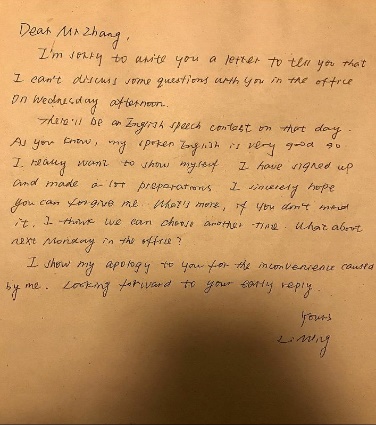 Dear Mr Zhang,
I'm sorry to write you a letter to tell you that
I can't discuss some questions with you in the office
on Wednesday afternoon.
There'll be an English speech contest on that day.
As you know, my spoken English is very good so
I really want to show myself. I have signed up
and made a lot preparations. I sincerely hope
you can forgive me. What's more, if you don't mind
it, I think we can choose another time. What about
next Monday in the office?
I show my apology to you for the inconvenience caused
by me. Looking forward to your early reply.
Yours
Li Ming